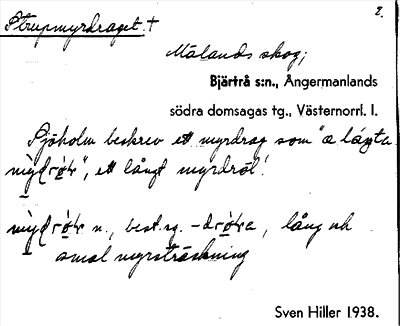 Strupmyrdraget. † 2.
Målands skog;
Bjärtrå s:n., Ångermanlands
södra domsagas tg., Västernorrl. l.
Sjöholm beskrev ett myrdrag som "a
", ett långt
n., best. sg. , lång och
smal myrsträckning
Sven Hiller 1938.